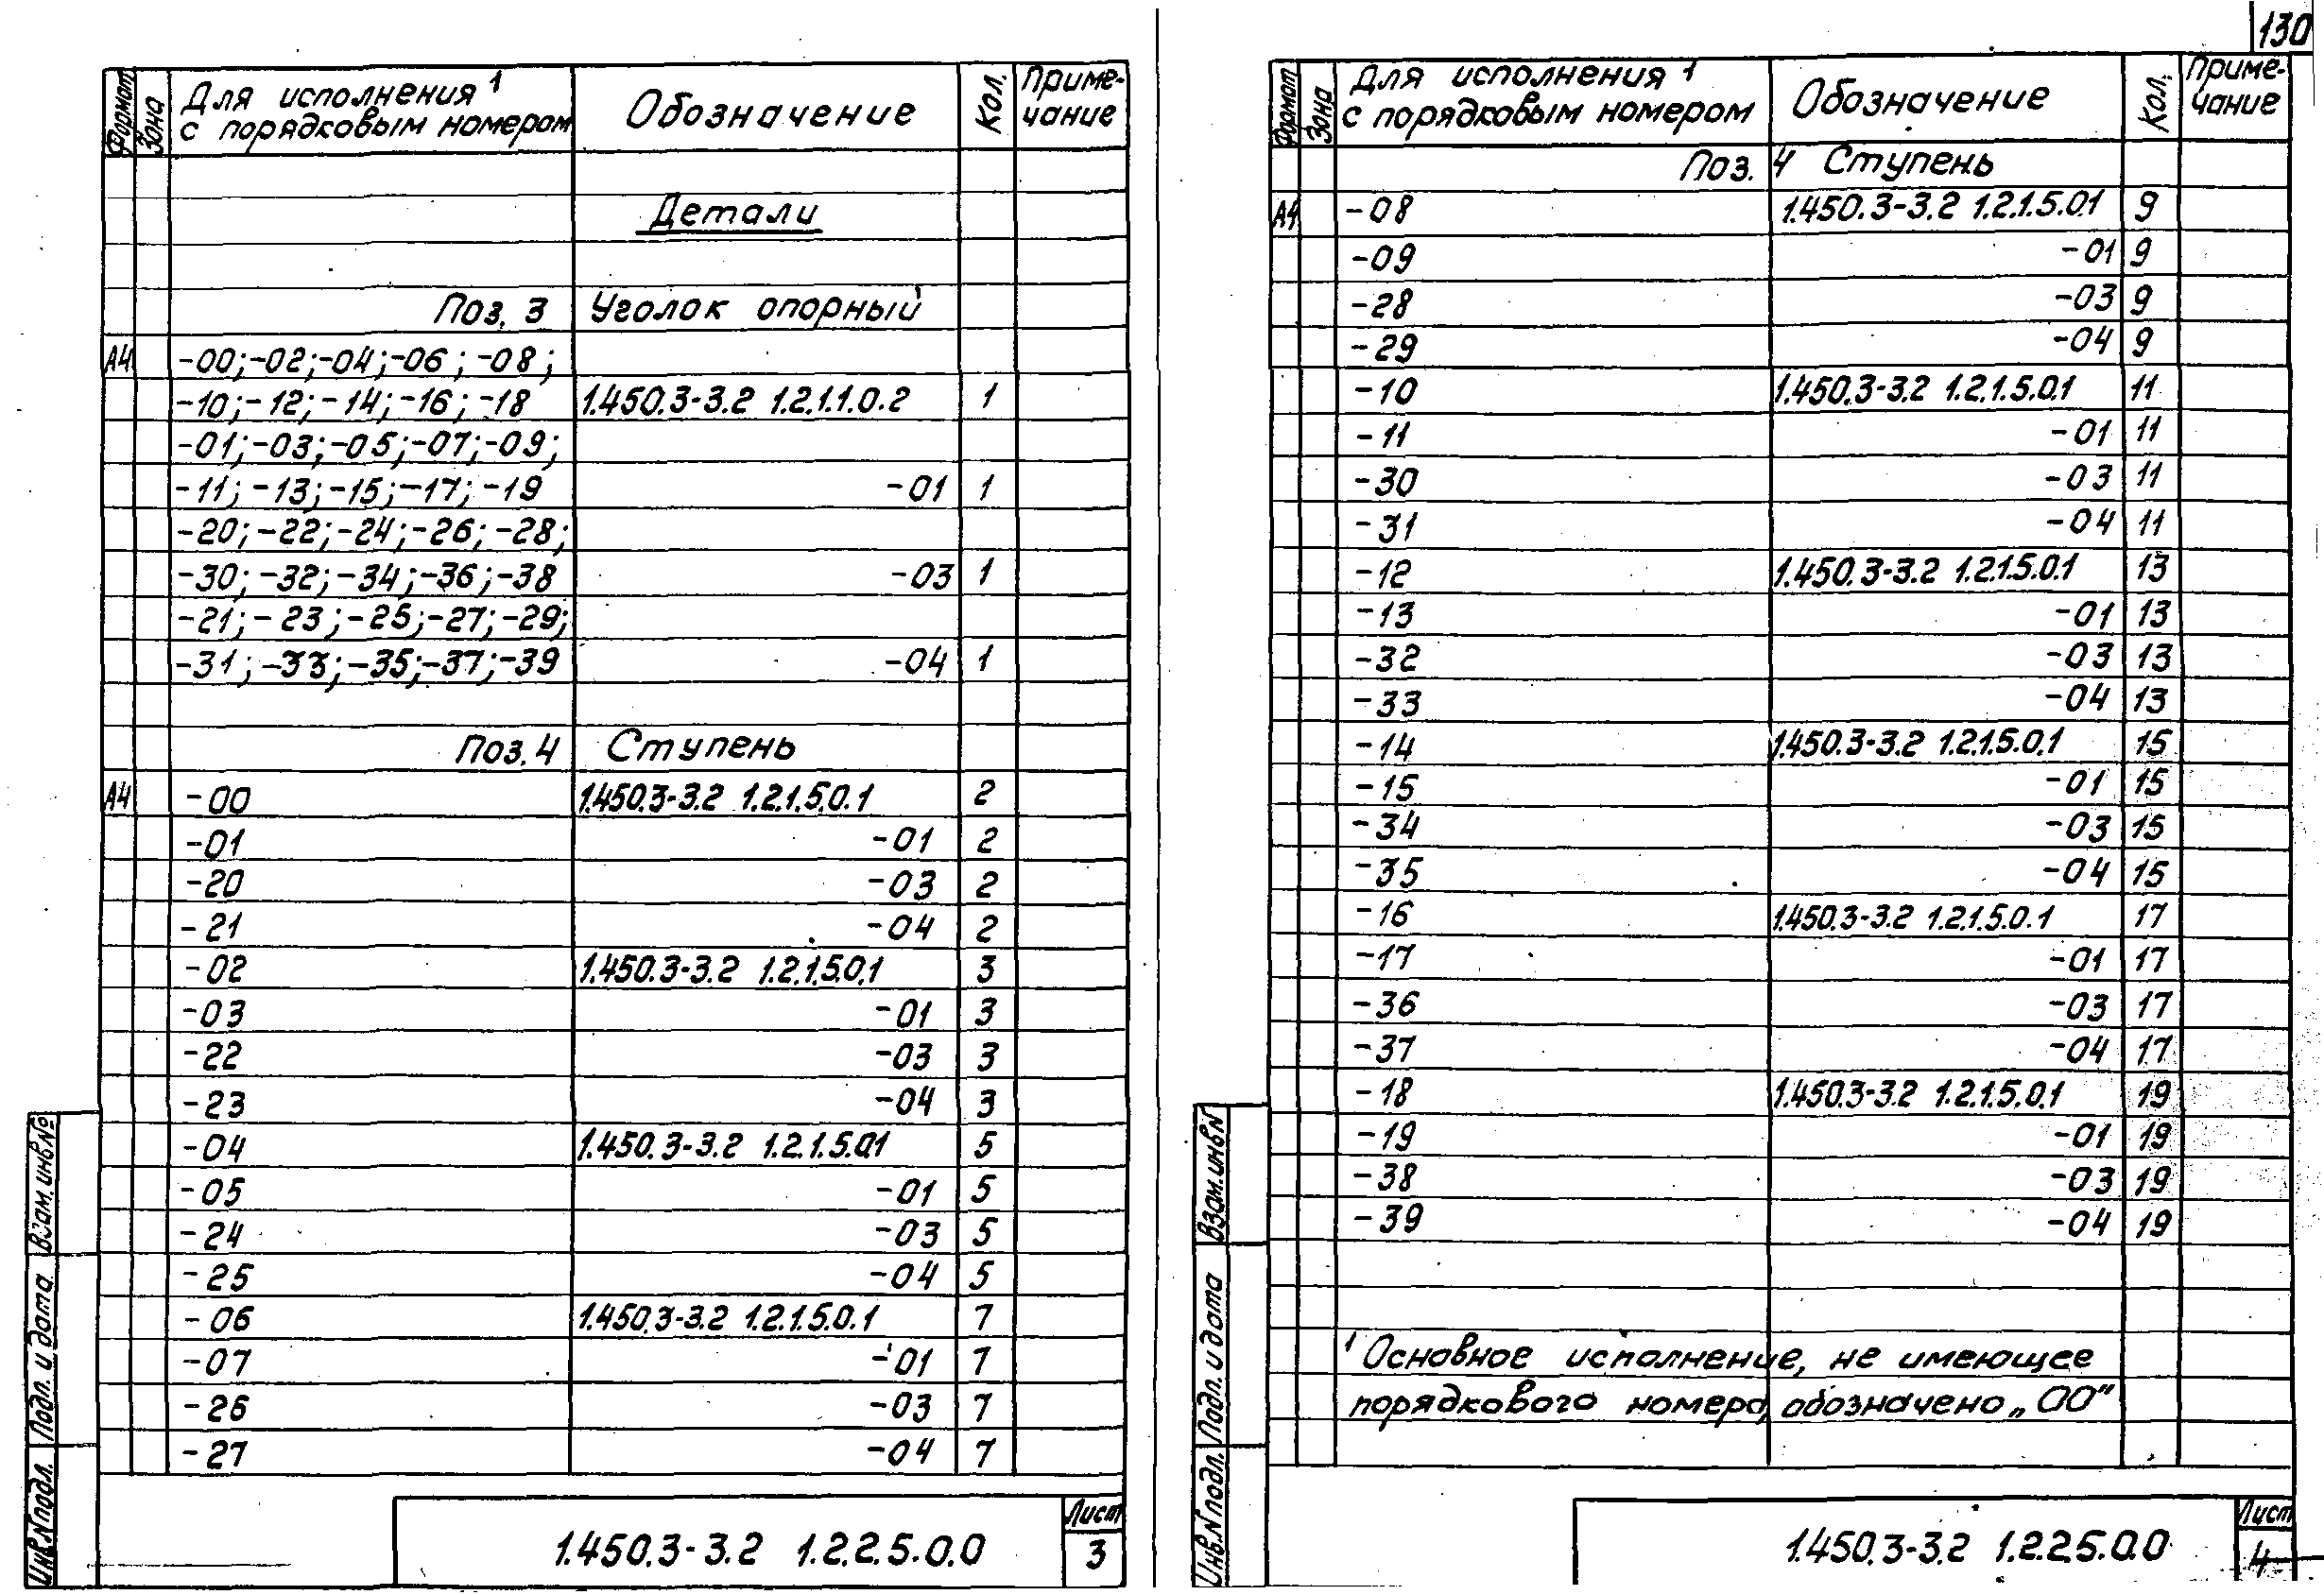 130
Формат Зона Для исполнения ¹ с порядковым номером Обозначение Кол. Приме-чание
Детали
Поз. 3 Уголок опорный
А4 -00; -02; -04; -06; -08;
-10; -12; -14; -16; -18 1.450.3-3.2 1.2.1.1.0.2 1
-01; -03; -05; -07; -09;
-11; -13; -15; -17; -19 -01 1
-20; -22; -24; -26; -28;
-30; -32; -34; -36; -38 -03 1
-21; -23; -25; -27; -29;
-31; -33; -35; -37; -39 -04 1
Поз. 4 Ступень
А4 -00 1.450.3-3.2 1.2.1.5.0.1 2
-01 -01 2
-20 -03 2
-21 -04 2
-02 1.450.3-3.2 1.2.1.5.0.1 3
-03 -01 3
-22 -03 3
-23 -04 3
-04 1.450.3-3.2 1.2.1.5.0.1 5
-05 -01 5
-24 -03 5
-25 -04 5
-06 1.450.3-3.2 1.2.1.5.0.1 7
-07 -01 7
-26 -03 7
-27 -04 7
Инв.№ подл. Подп. и дата Взам. инв.№
1.450.3-3.2 1.2.2.5.0.0
Лист
3
Формат Зона Для исполнения ¹ с порядковым номером Обозначение Кол. Приме-чание
Поз. 4 Ступень
А4 -08 1.450.3-3.2 1.2.1.5.0.1 9
-09 -01 9
-28 -03 9
-29 -04 9
-10 1.450.3-3.2 1.2.1.5.0.1 11
-11 -01 11
-30 -03 11
-31 -04 11
-12 1.450.3-3.2 1.2.1.5.0.1 13
-13 -01 13
-32 -03 13
-33 -04 13
-14 1.450.3-3.2 1.2.1.5.0.1 15
-15 -01 15
-34 -03 15
-35 -04 15
-16 1.450.3-3.2 1.2.1.5.0.1 17
-17 -01 17
-36 -03 17
-37 -04 17
-18 1.450.3-3.2 1.2.1.5.0.1 19
-19 -01 19
-38 -03 19
-39 -04 19
¹ Основное исполнение, не имеющее
порядкового номера, обозначено „00"
Инв.№ подл. Подп. и дата Взам. инв.№
1.450.3-3.2 1.2.2.5.0.0
Лист
4